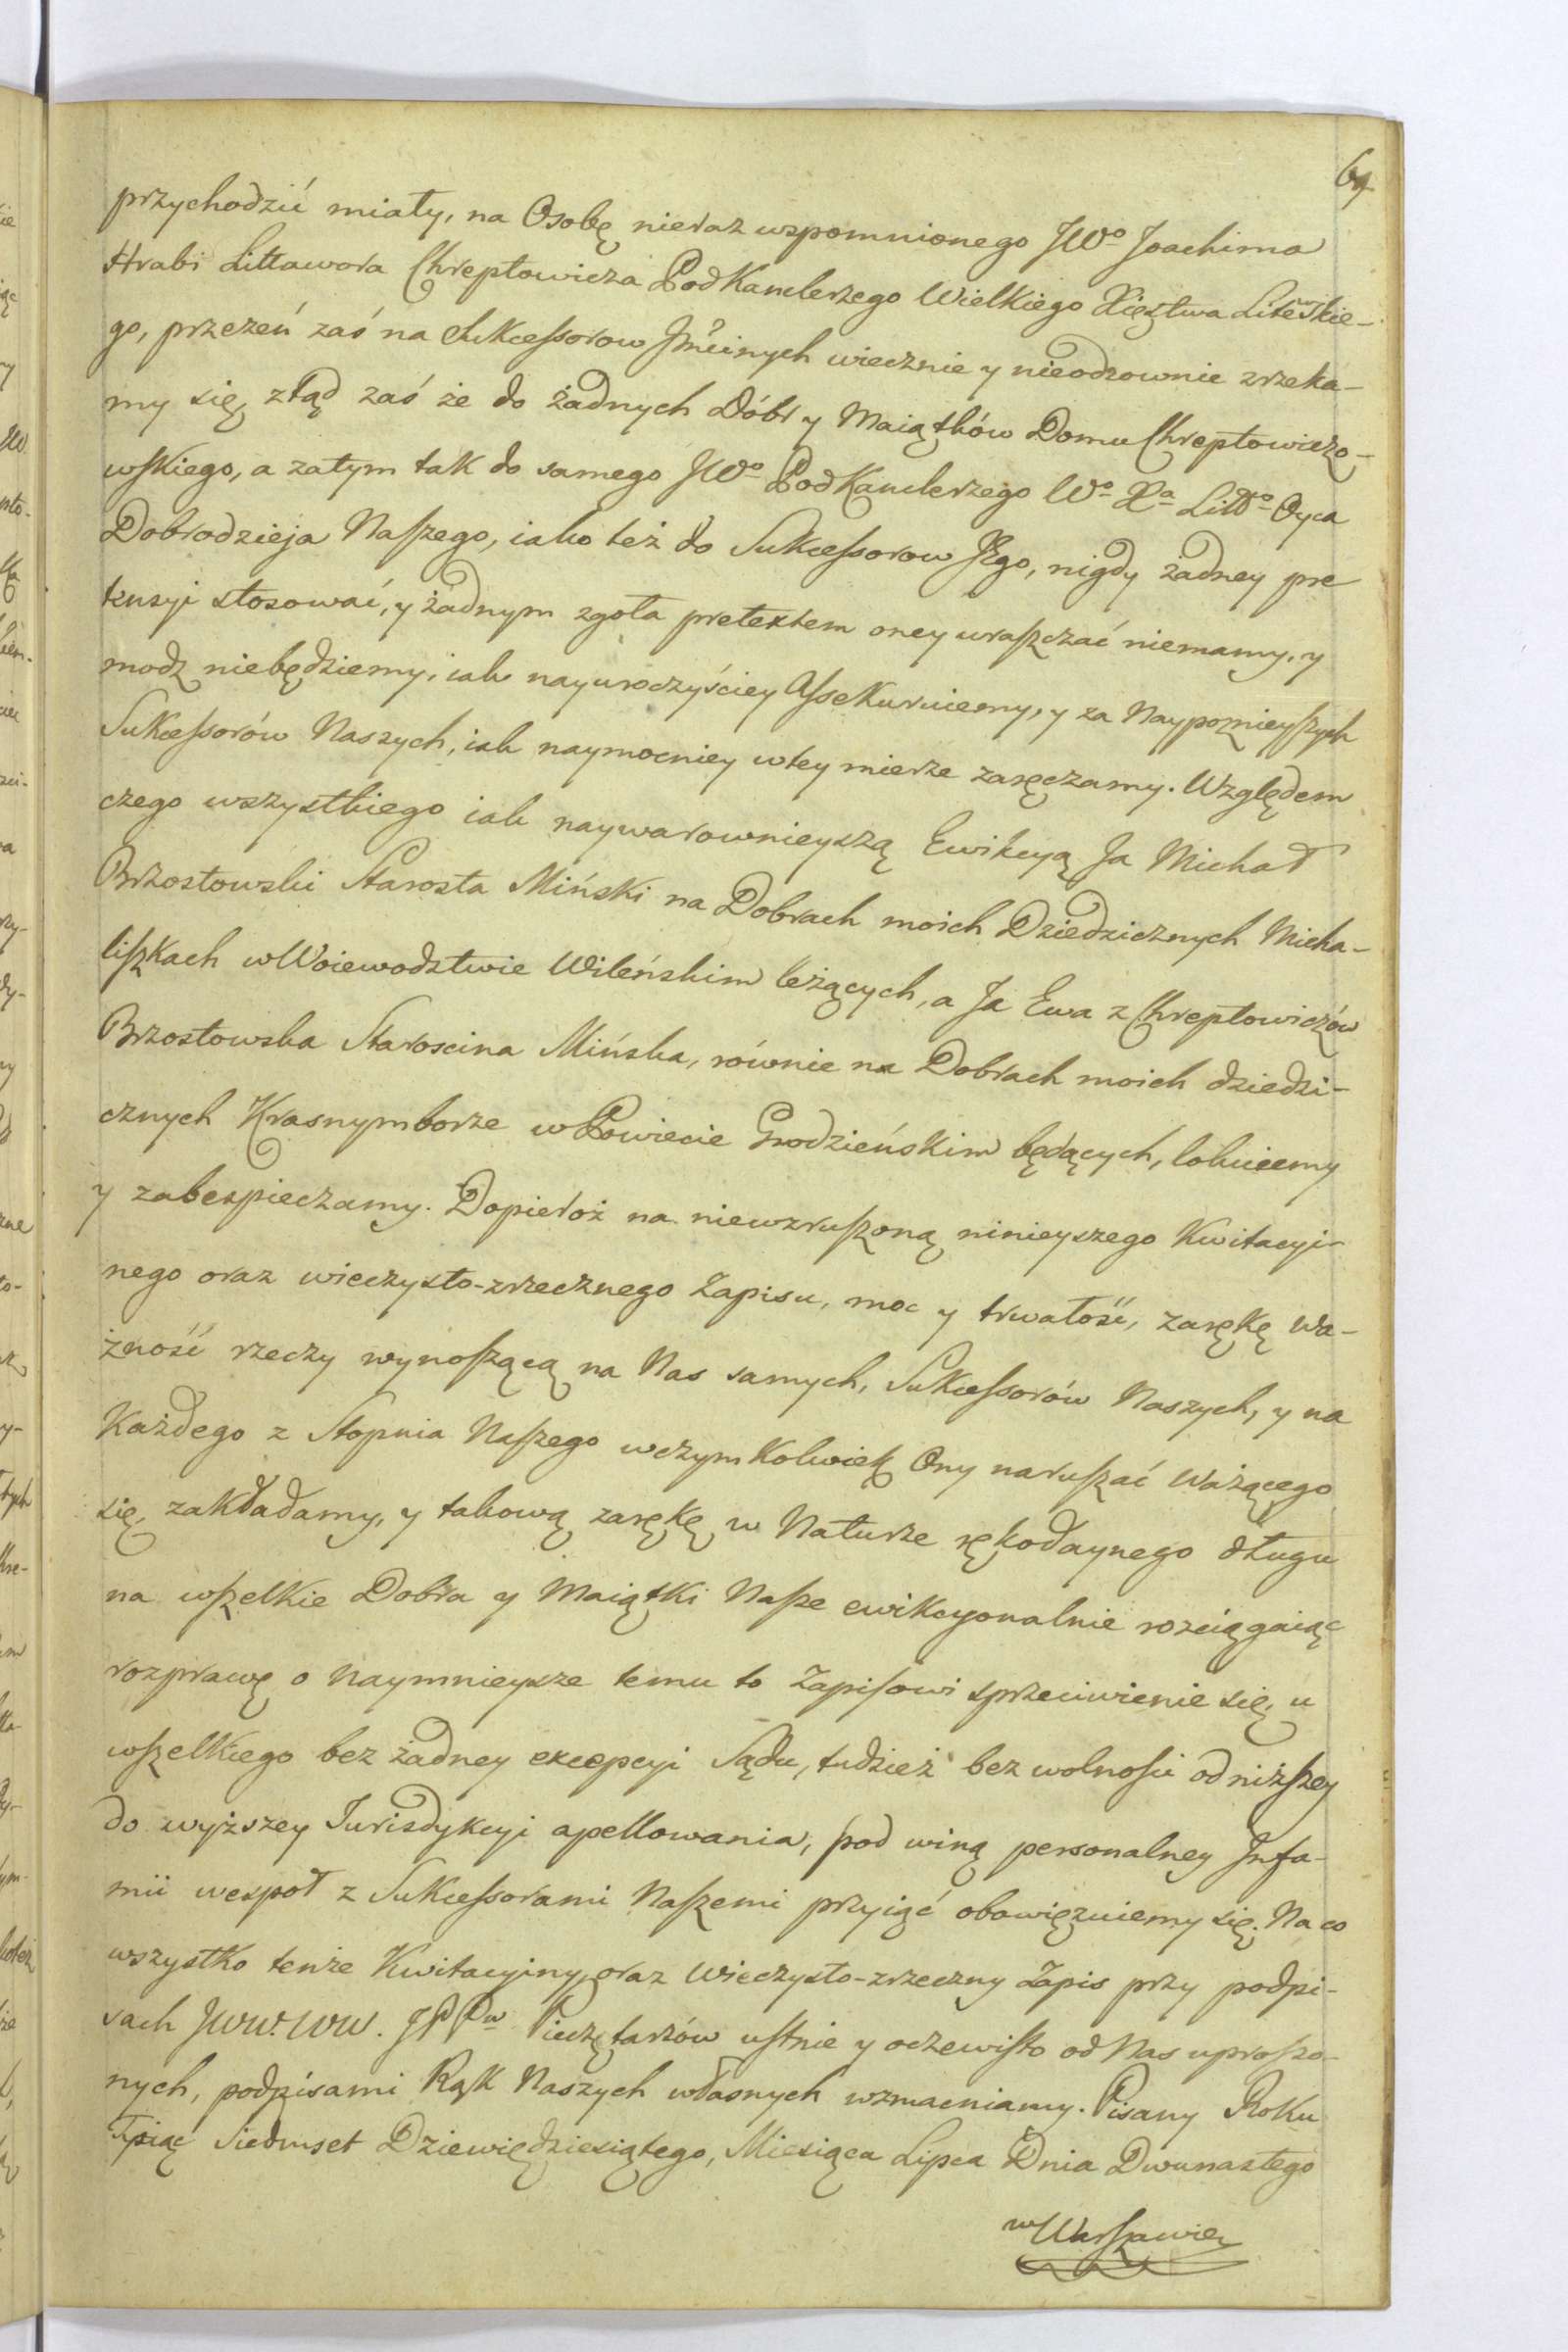 69
przychodzić miały, na Osobę nieraz wspomnionego JWo Joachima
Hrabi Littawora Chreptowicza PodKanclerzego Wielkiego Xięstwa Litewskie-
go, przezeń zaś na Sukcessorow Jmcinych wiecznie y nieodzownie zrzeka-
my się, ztąd zaś że do żadnych Dóbr y Maiątków Domu Chreptowiczo-
wskiego, a zatym tak do samego JWo PodKanclerzego Wo Xa Litto Oyca
Dobrodzieja Naszego, iako też do Sukcessorow Jego, nigdy żadney pre
tensyi stosować, y żadnym zgoła pretextem oney wraszczać niemamy, y
modz niebędziemy, iak nayuroczyściey Assekuruiemy, y za Naypoznieyszych
Sukcessorów Naszych, iak naymocniey wtey mierze zaręczamy. Względem
czego wszystkiego iak naywarownieyszą Ewikcyą Ja Michał
Brzostowski Starosta Miński na Dobrach moich Dziedzicznych Micha-
liszkach wWoiewodztwie Wileńskim leżących, a Ja Ewa z Chreptowiczów
Brzostowska Starościna Mińska, równie na Dobrach moich dziedzi-
cznych Krasnymborze wPowiecie Grodzieńskim będących, lokuiemy
y zabespieczamy. Dopieroż na niewzruszoną ninieyszego Kwitacyi-
nego oraz wieczysto-zrzecznego Zapisu, moc y trwałość, zarękę wa-
żność rzeczy wynoszącą na Nas samych, Sukcessorów Naszych, y na
Każdego z Stopnia Naszego wczymkolwiek Ony naruszać ważącego
się, zakładamy, y takową zarękę w Naturze rękodaynego długu
na wszelkie Dobra y Maiątki Nasze ewikcyonalnie rozciągaiąc
rozprawę o naymnieysze temu to Zapisowi sprzeciwienie się, u
wszelkiego bez żadney excepcyi Sądu, tudzież bez wolności od niższey
do wyższey Jurisdykcyi apellowania, pod winą personalney Infa-
mii wespoł z Sukcessorami Naszemi przyiąć obowięzuiemy się. Na co
wszystko tenże Kwitacyiny oraz Wieczysto-zrzeczny Zapis przy podpi-
sach JWW. WW. JPPw Pieczętarzów ustnie y oczewisto od Nas uproszo-
nych, podpisami Rąk Naszych własnych wzmacniamy. Pisany Roku
Tysiąc Siedmset Dziewiędziesiątego, Miesiąca Lipca Dnia Dwunastego
w Warszawie